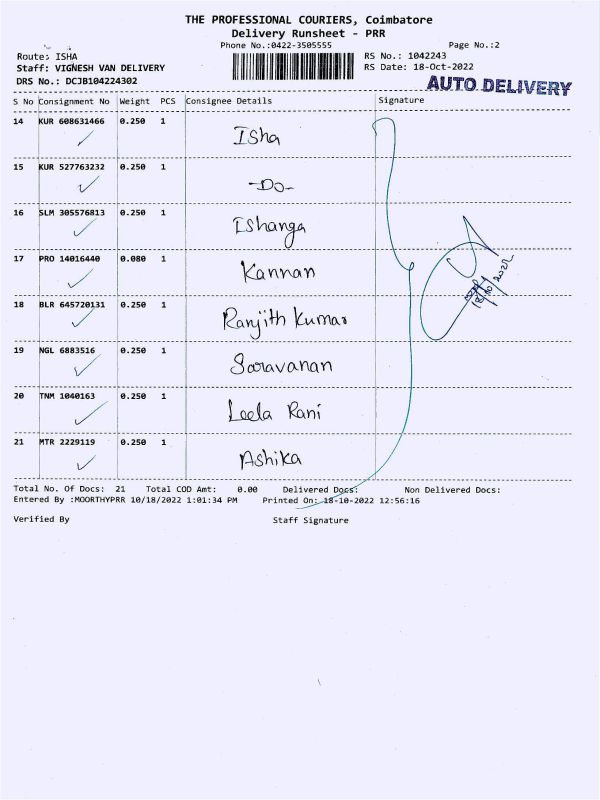 THE PROFESSIONAL COURIERS, Coimbatore
Delivery Runsheet - PRR
Phone No.:0422-3505555 Page No.:2
Route: ISHA RS No.: 1042243
Staff: VIGNESH VAN DELIVERY RS Date: 18-Oct-2022
DRS No.: DCJB104224302
AUTO DELIVERY
S No Consignment No Weight PCS Consignee Details Signature
14 KUR 608631466 0.250 1 Isha
15 KUR 527763232 0.250 1 -Do-
16 SLM 305576813 0.250 1 Ishanga
17 PRO 14016440 0.080 1 Kannan
18 BLR 645720131 0.250 1 Ranjith Kumar
19 NGL 6883516 0.250 1 Saravanan
20 TNM 1040163 0.250 1 Leela Rani
21 MTR 2229119 0.250 1 Ashika
18/10/2022
Total No. Of Docs: 21 Total COD Amt: 0.00 Delivered Docs: Non Delivered Docs:
Entered By :MOORTHYPRR 10/18/2022 1:01:34 PM Printed On: 18-10-2022 12:56:16
Verified By Staff Signature